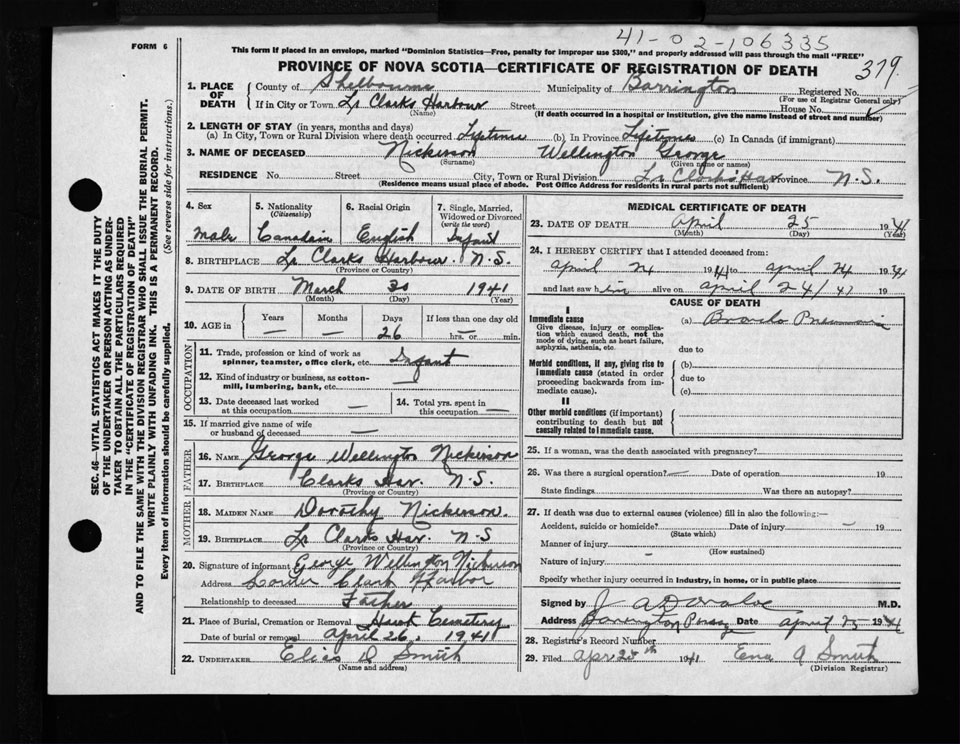 41-02-106335
FORM 6
This form if placed in an envelope, marked "Dominion Statistics—Free, penalty for improper use $300," and properly addressed will pass through the mail "FREE"
PROVINCE OF NOVA SCOTIA—CERTIFICATE OF REGISTRATION OF DEATH
379
SEC. 46—VITAL STATISTICS ACT MAKES IT THE DUTY
OF THE UNDERTAKER OR PERSON ACTING AS UNDER-
TAKER TO OBTAIN ALL THE PARTICULARS REQUIRED
IN THE "CERTIFICATE OF REGISTRATION OF DEATH"
AND TO FILE THE SAME WITH THE DIVISION REGISTRAR WHO SHALL ISSUE THE BURIAL PERMIT.
WRITE PLAINLY WITH UNFADING INK. THIS IS A PERMANENT RECORD.
Every item of information should be carefully supplied. (See reverse side for instructions.)
1. PLACE OF DEATH
County of Shelbourne Municipality of Barrington Registered No.
(For use of Registrar General only)
If in City or Town Lr Clarks Harbour Street House No.
(Name) (If death occurred in a hospital or institution, give the name instead of street and number)
2. LENGTH OF STAY (in years, months and days)
(a) In City, Town or Rural Division where death occurred Lifetime (b) In Province Lifetime (c) In Canada (if immigrant)
3. NAME OF DECEASED Nickerson Wellington George
(Surname) (Given name or names)
RESIDENCE No. Street City, Town or Rural Division Lr Clarks Har Province N.S.
(Residence means usual place of abode. Post Office Address for residents in rural parts not sufficient)
4. Sex Male
5. Nationality (Citizenship) Canadain
6. Racial Origin English
7. Single, Married, Widowed or Divorced (write the word) Infant
8. BIRTHPLACE Lr Clarks Harbour. N.S.
(Province or Country)
9. DATE OF BIRTH March 30 1941
(Month) (Day) (Year)
10. AGE in Years — Months — Days 26 If less than one day old hrs. or min.
OCCUPATION
11. Trade, profession or kind of work as spinner, teamster, office clerk, etc. Infant
12. Kind of industry or business, as cotton-mill, lumbering, bank, etc. —
13. Date deceased last worked at this occupation —
14. Total yrs. spent in this occupation —
15. If married give name of wife or husband of deceased —
FATHER
16. NAME George Wellington Nickerson
17. BIRTHPLACE Clarks Har. N.S.
(Province or Country)
MOTHER
18. MAIDEN NAME Dorothy Nickerson.
19. BIRTHPLACE Lr Clarks Har. N S
(Province or Country)
20. Signature of informant George Wellington Nickerson
Address Clark Harbor
Relationship to deceased Father
21. Place of Burial, Cremation or Removal Hawk Cemetery
Date of burial or removal April 26, 1941
22. UNDERTAKER Elias D Smith
(Name and address)
MEDICAL CERTIFICATE OF DEATH
23. DATE OF DEATH April 25 1941
(Month) (Day) (Year)
24. I HEREBY CERTIFY that I attended deceased from:
April 24 1941 to April 24 1941
and last saw him alive on April 24/41 19
CAUSE OF DEATH
I
Immediate cause
Give disease, injury or complication which caused death, not the mode of dying, such as heart failure, asphyxia, asthenia, etc.
(a) Broncho Pneumonia
due to
Morbid conditions, if any, giving rise to immediate cause (stated in order proceeding backwards from immediate cause).
(b)
due to
(c)
II
Other morbid conditions (if important) contributing to death but not causally related to immediate cause.
25. If a woman, was the death associated with pregnancy?
26. Was there a surgical operation? — Date of operation 19
State findings Was there an autopsy?
27. If death was due to external causes (violence) fill in also the following:—
Accident, suicide or homicide? Date of injury — 19
(State which)
Manner of injury
(How sustained)
Nature of injury —
Specify whether injury occurred in industry, in home, or in public place
Signed by M.D.
Address Barrington Passage Date April 25 1941
28. Registrar's Record Number
29. Filed Apr 25th 1941 Ena A Smith
(Division Registrar)